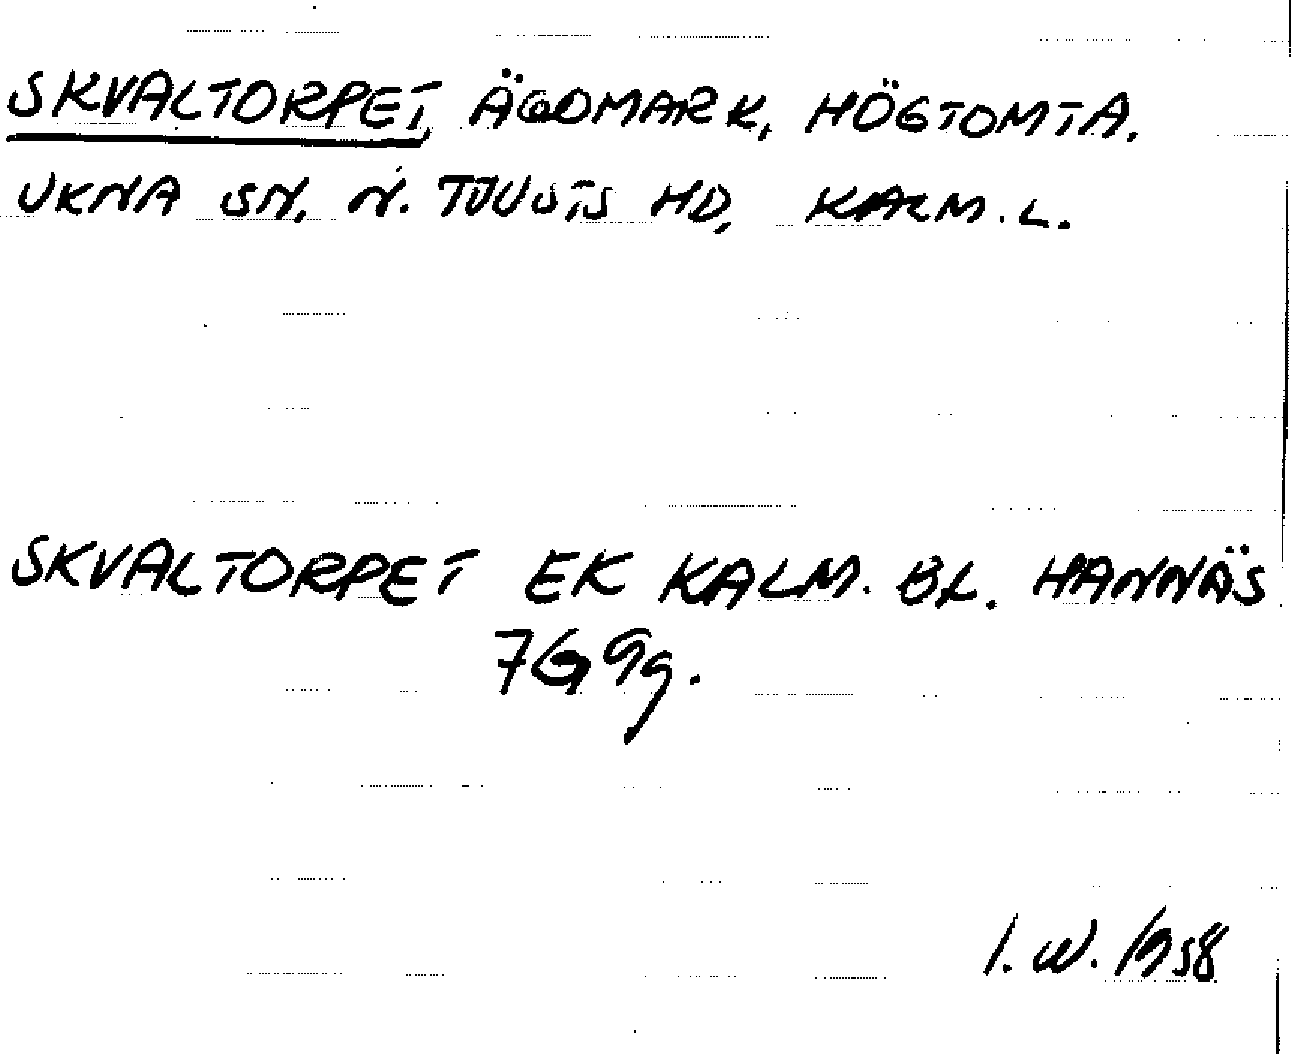 SKVALTORPET, ÄGOMARK, HÖGTOMTA.
UKNA SN, N. TJUSTS HD, KALM. L.
SKVALTORPET EK KALM. BL. HANNÄS
7G 9g.
I. W. 1958